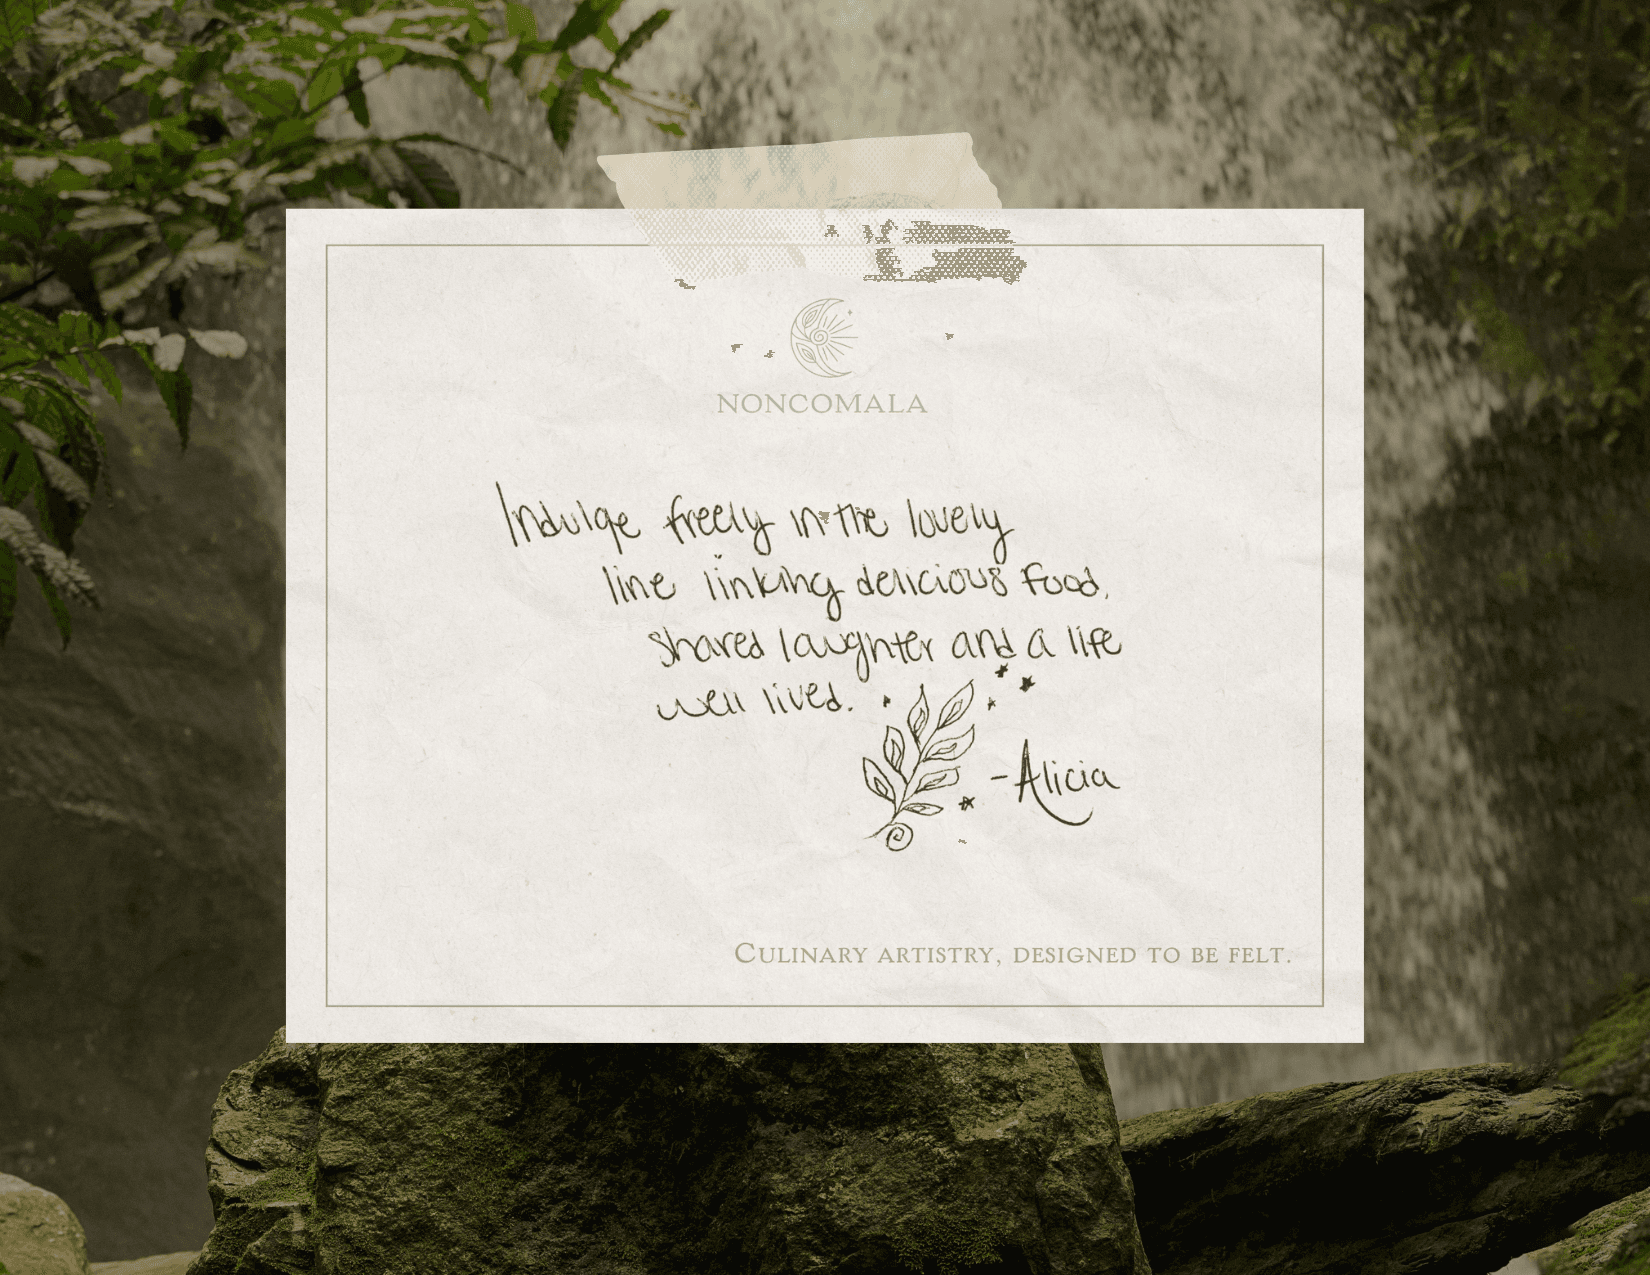 NONCOMALA
Indulge freely in the lovely
line linking delicious food,
shared laughter and a life
well lived.
-Alicia
Culinary artistry, designed to be felt.